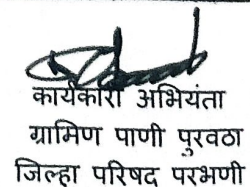 कार्यकारी अभियंता
ग्रामिण पाणी पुरवठा
जिल्हा परिषद परभणी